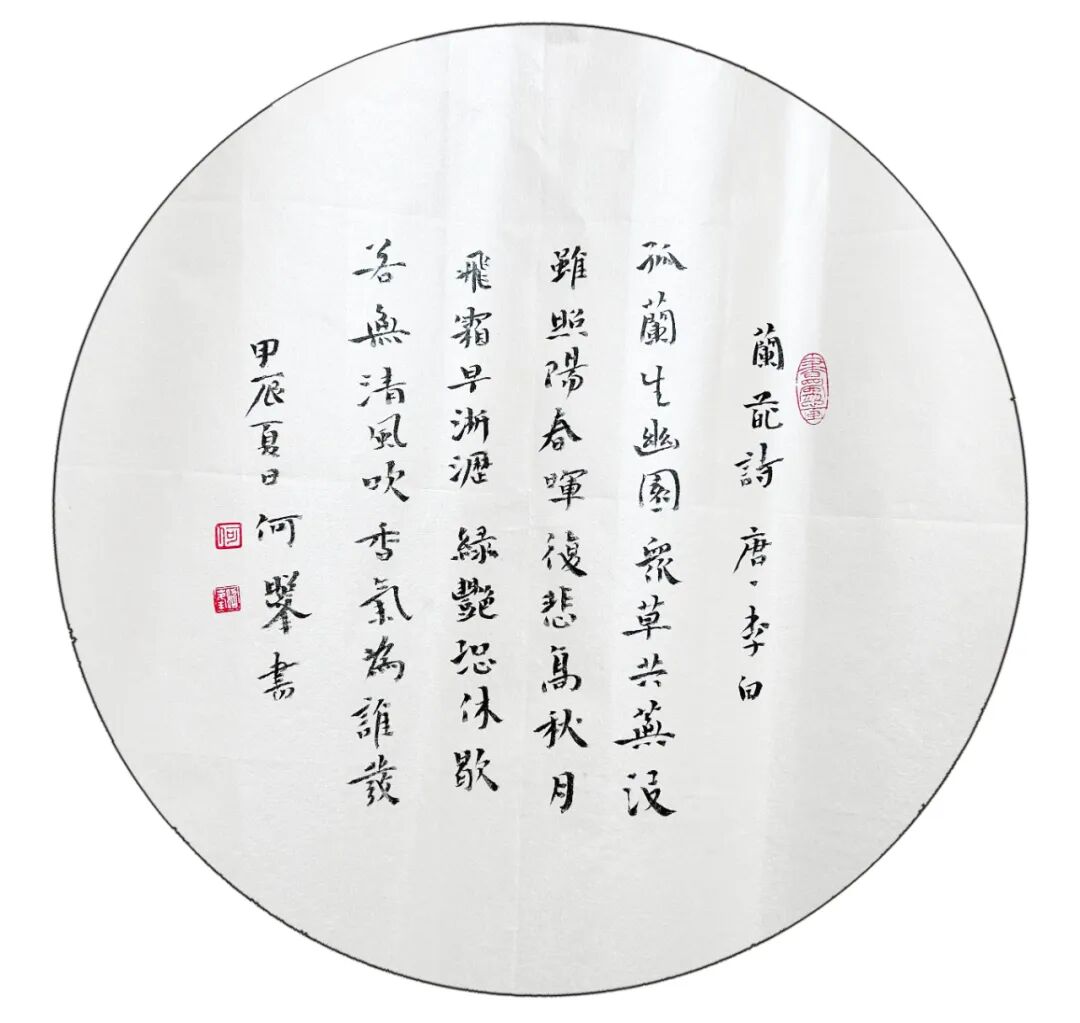 蘭蒞詩 唐、李白
孤蘭生幽園眾草共蕪没
雖照陽春暉復悲高秋月
飛霜早淅瀝 綠艷恐休歇
若無清風吹香氣為誰發
甲辰夏日何 書
何